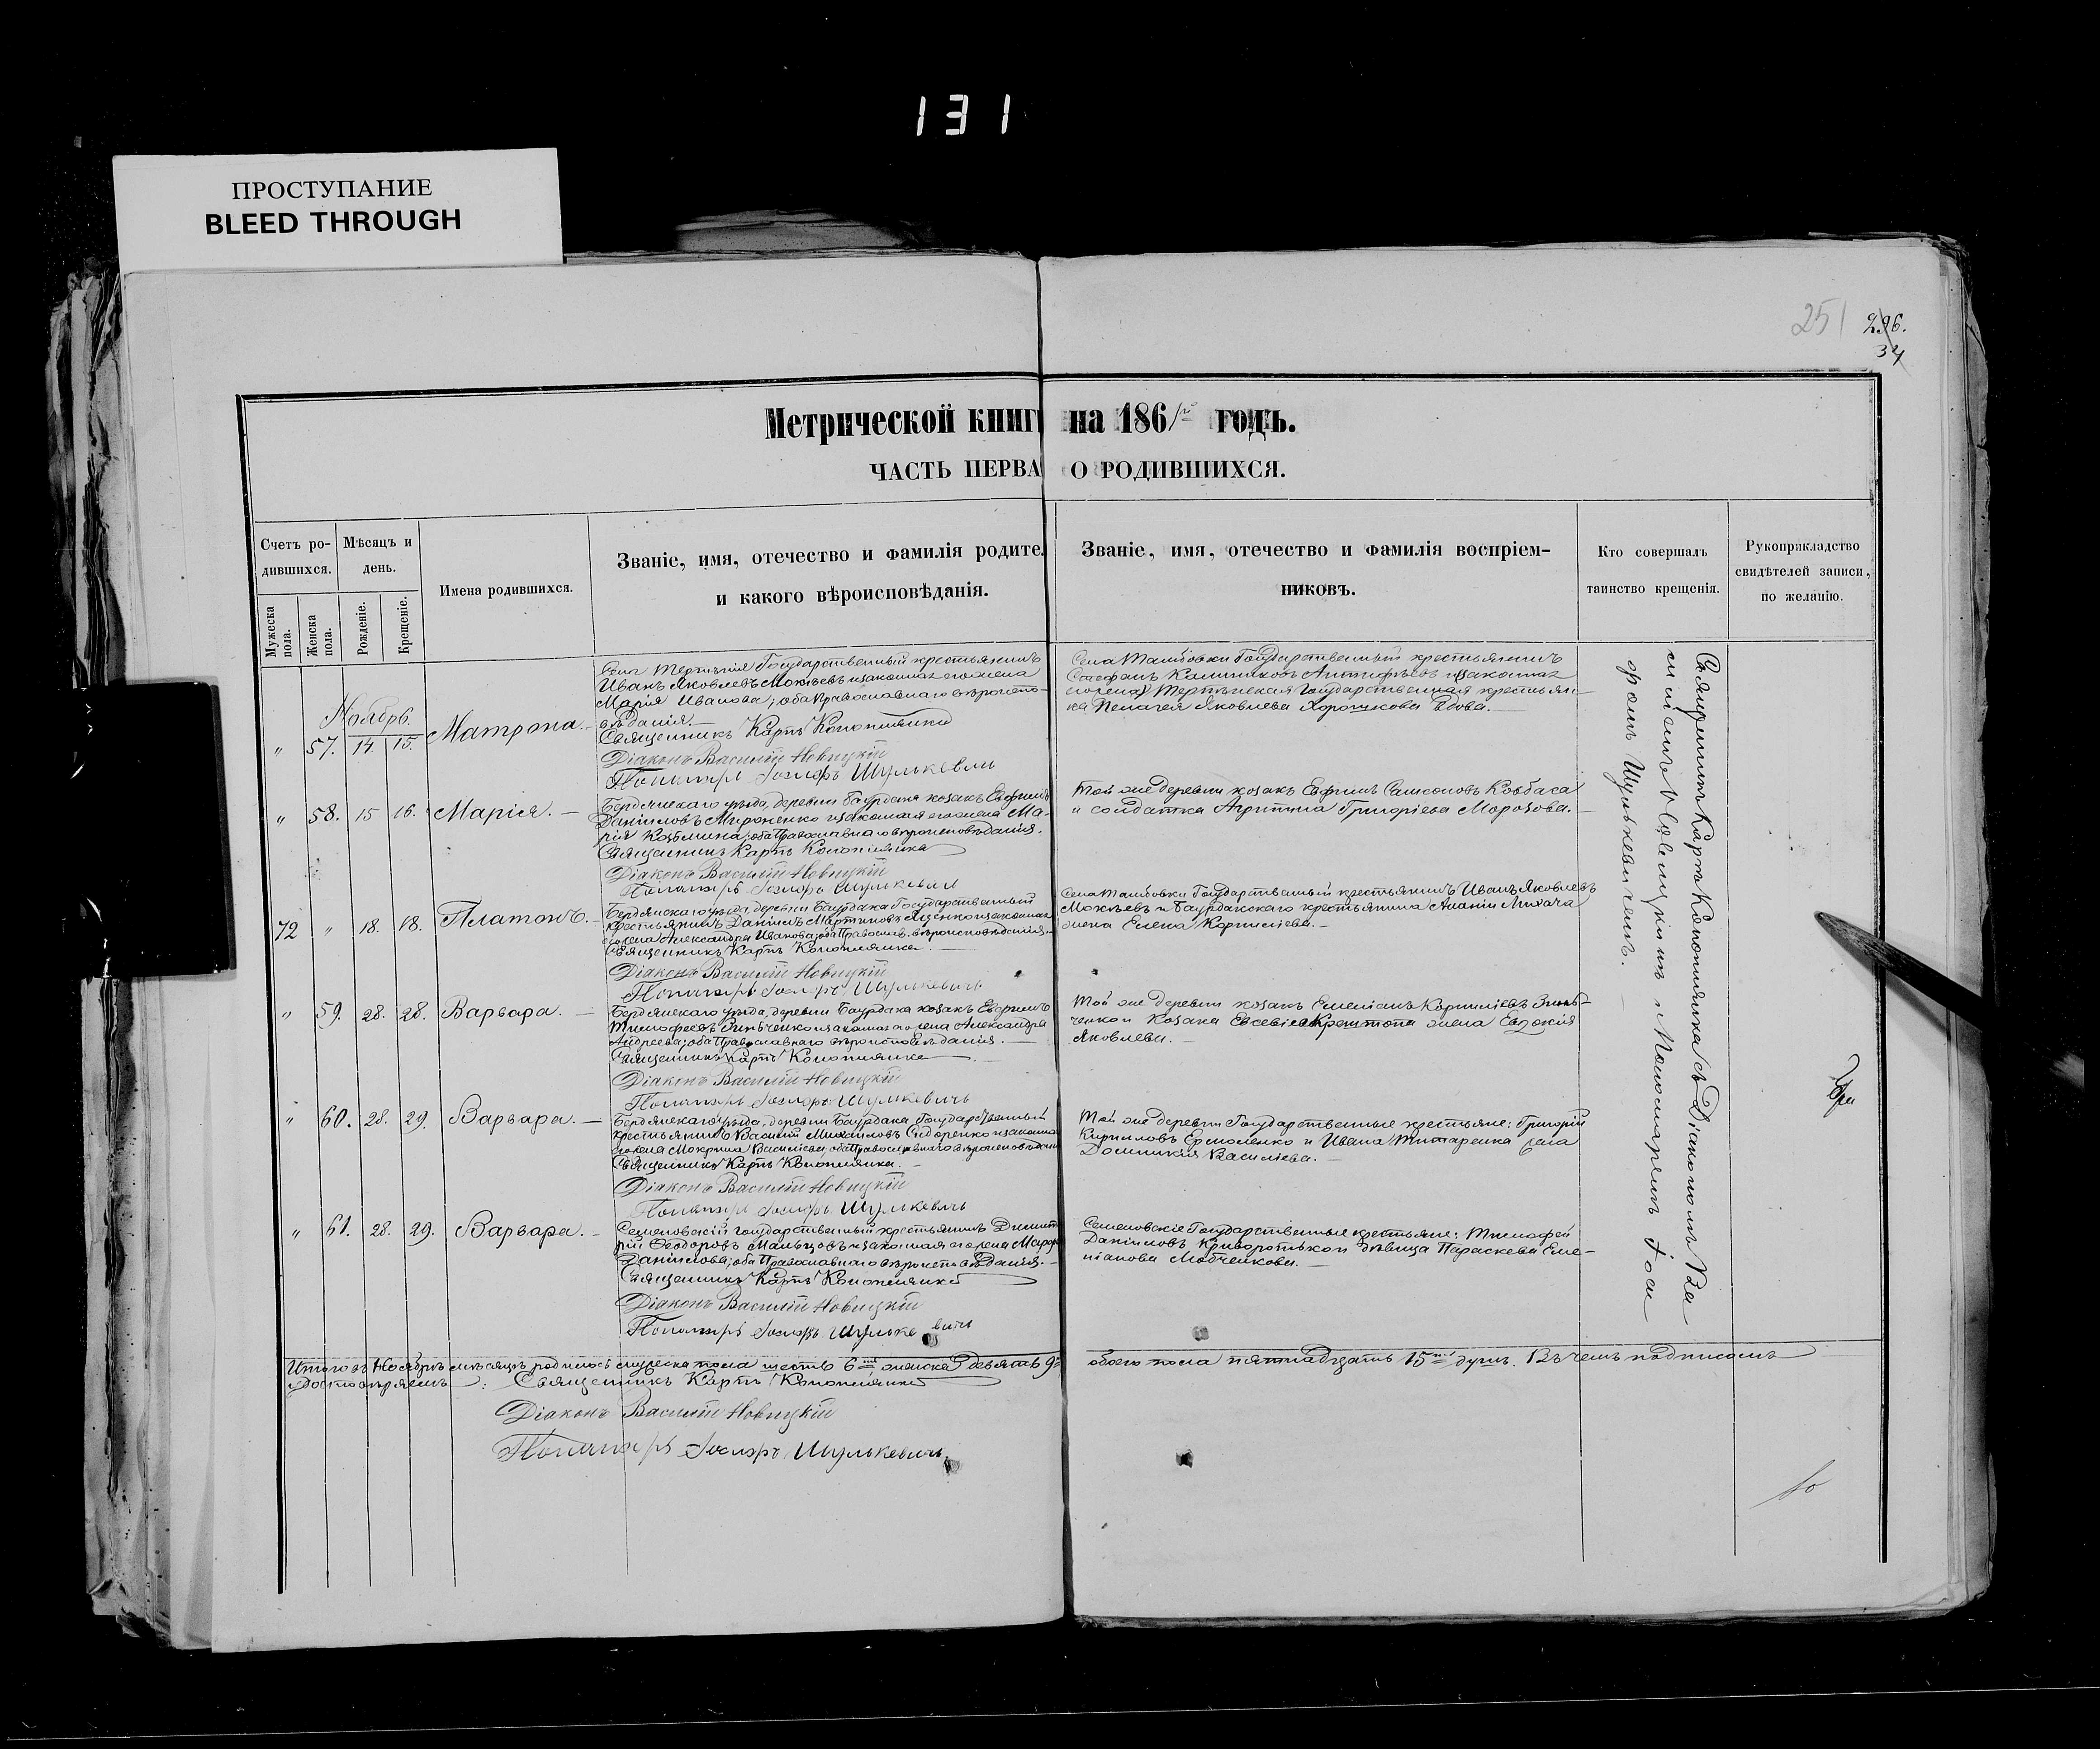 131
ПРОСТУПАНИЕ
BLEED THROUGH
251 296.
34
Метрической книг на 1861 годъ.
ЧАСТЬ ПЕРВА О РОДИВШИХСЯ.
Счетъ ро-
дившихся.
Мужеска пола.
Женска пола.
Мѣсяцъ и
день.
Рожденіе.
Крещеніе.
Имена родившихся.
Званіе, имя, отечество и фамилія родите
и какого вѣроисповѣданія.
Званіе, имя, отечество и фамилія воспріем-
никовъ.
Кто совершалъ
таинство крещенія.
Рукоприкладство
свидѣтелей записи,
по желанію.
Ноябрь.
" 57. 14 15. Матрона.
Государственный крестьянинъ
Иванъ Яковлевъ Мокѣевъ и законная его жена
Марія Иванова; оба Православнаго вѣроиспо-
вѣданія.
Священникъ Карпъ Конопляника
Діаконъ Василій Новицкій
Пономарь Іосифъ Шулькевичь
Села Тамбовки Государственный крестьянинъ
Стефанъ Калашниковъ
Государственная крестьян-
ка Пелагея Яковлева Хорошкова вдова.
" 58. 15 16. Марія. —
Бердянскаго уѣзда, деревни Баурдака козакъ Евфимъ
Даніиловъ Мироненко и законная его жена Ма-
рія Козьмина; оба Православнаго вѣроисповѣданія.
Священникъ Карпъ Конопляника
Діаконъ Василій Новицкій
Пономарь Іосифъ Шулькевичь
Той же деревни козакъ Евфимъ Самсоновъ Ковбаса
и солдатка Агрипина Григоріева Морозова.—
72 " 18. 18. Платонъ.—
Бердянскаго уѣзда, деревни Баурдака Государственный
крестьянинъ Даніилъ Мартиновъ Яценко и законная
его жена Александра Иванова; оба Правосл. вѣроисповѣданія.—
Священникъ Карпъ Конопляника.
Діаконъ Василій Новицкій
Пономарь Іосифъ Шулькевичь
Села Тамбовки Государственный крестьянинъ Иванъ Яковлевъ
Мокѣевъ и Баурдакскаго крестьянина Ананіи Лихача
жена Елена Корниліева.—
" 59. 28. 28. Варвара. —
Бердянскаго уѣзда, деревни Баурдака козакъ Евфимъ
Тимофеевъ Зинченко и законная его жена Александра
Андреева; оба Православнаго вѣроисповѣданія.—
Священникъ Карпъ Конопляника
Діаконъ Василій Новицкій
Пономарь Іосифъ Шулькевичь
Той же деревни козакъ Емеліанъ Корниліевъ Зинь-
ченко и козака Евсевія жена Евдокія
Яковлева.—
" 60. 28. 29. Варвара. —
Бердянскаго уѣзда, деревни Баурдака Государственный
крестьянинъ Василій Михаиловъ Сидоренко и законная
его жена Мокрина Василіева, оба Православнаго вѣроисповѣданія
Священникъ Карпъ Конопляника.
Діаконъ Василій Новицкій
Пономарь Іосифъ Шулькевичь
Той же деревни Государственные крестьяне: Григорій
Кирилловъ Ермоленко и Ивана Титаренка жена
Домникія Василіева.—
" 61. 28. 29. Варвара. —
Семеновскій Государственный крестьянинъ Димит-
рій Ѳеодоровъ Мальцовъ и законная его жена Марфа
Даніилова; оба Православнаго вѣроисповѣданія.—
Священникъ Карпъ Конопляника
Діаконъ Василій Новицкій
Пономарь Іосифъ Шулькевичь
Семеновскіе Государственные крестьяне: Тимофей
Даніиловъ Криворотько и дѣвица Параскева Еме-
ліанова Мовченкова.—
Священникъ Карпъ Конопляника съ Діакономъ Ва
силіемъ Новицкимъ и Пономаремъ Іоси
фомъ Шулькевичемъ.
Итого въ Ноябрѣ мѣсяцѣ родилось мужеска пола шесть 6 женска девять 9 обоего пола пятнадцать 15 душъ. Въ чемъ подписомъ
удостовѣряемъ: Священникъ Карпъ Конопляника
Діаконъ Василій Новицкій
Пономарь Іосифъ Шулькевичь.